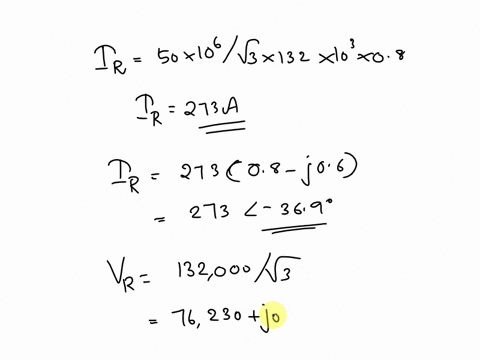 I_R = 50×10⁶/√3×132×10³×0.8
I_R = 273A
I_R = 273(0.8-j0.6)
= 273∠-36.9°
V_R = 132,000/√3
= 76,230+j0